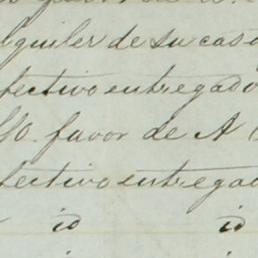 favor de A
alquiler de su casa
efectivo entregado
favor de A
efectivo entregado
id id